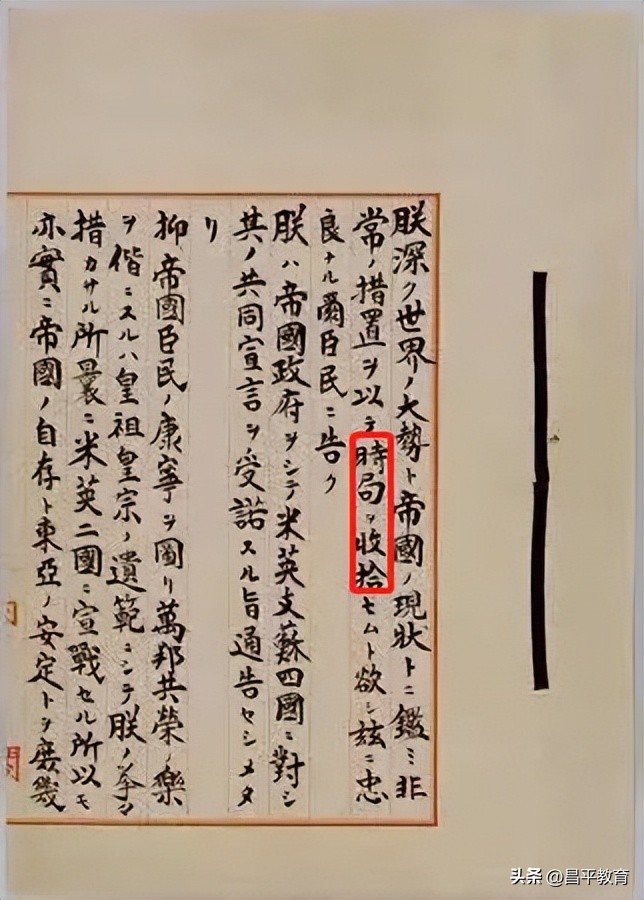 朕深ク世界ノ大勢ト帝國ノ現狀トニ鑑ミ非
常ノ措置ヲ以テ時局ヲ收拾セムト欲シ玆ニ忠
良ナル爾臣民ニ告ク
朕ハ帝國政府ヲシテ米英支蘇四國ニ對シ
其ノ共同宣言ヲ受諾スル旨通告セシメタ
リ
抑帝國臣民ノ康寧ヲ圖リ萬邦共榮ノ樂
ヲ偕ニスルハ皇祖皇宗ノ遺範ニシテ朕ノ拳々
措カサル所曩ニ米英二國ニ宣戰セル所以モ
亦實ニ帝國ノ自存ト東亞ノ安定トヲ庶幾
头条 @昌平教育